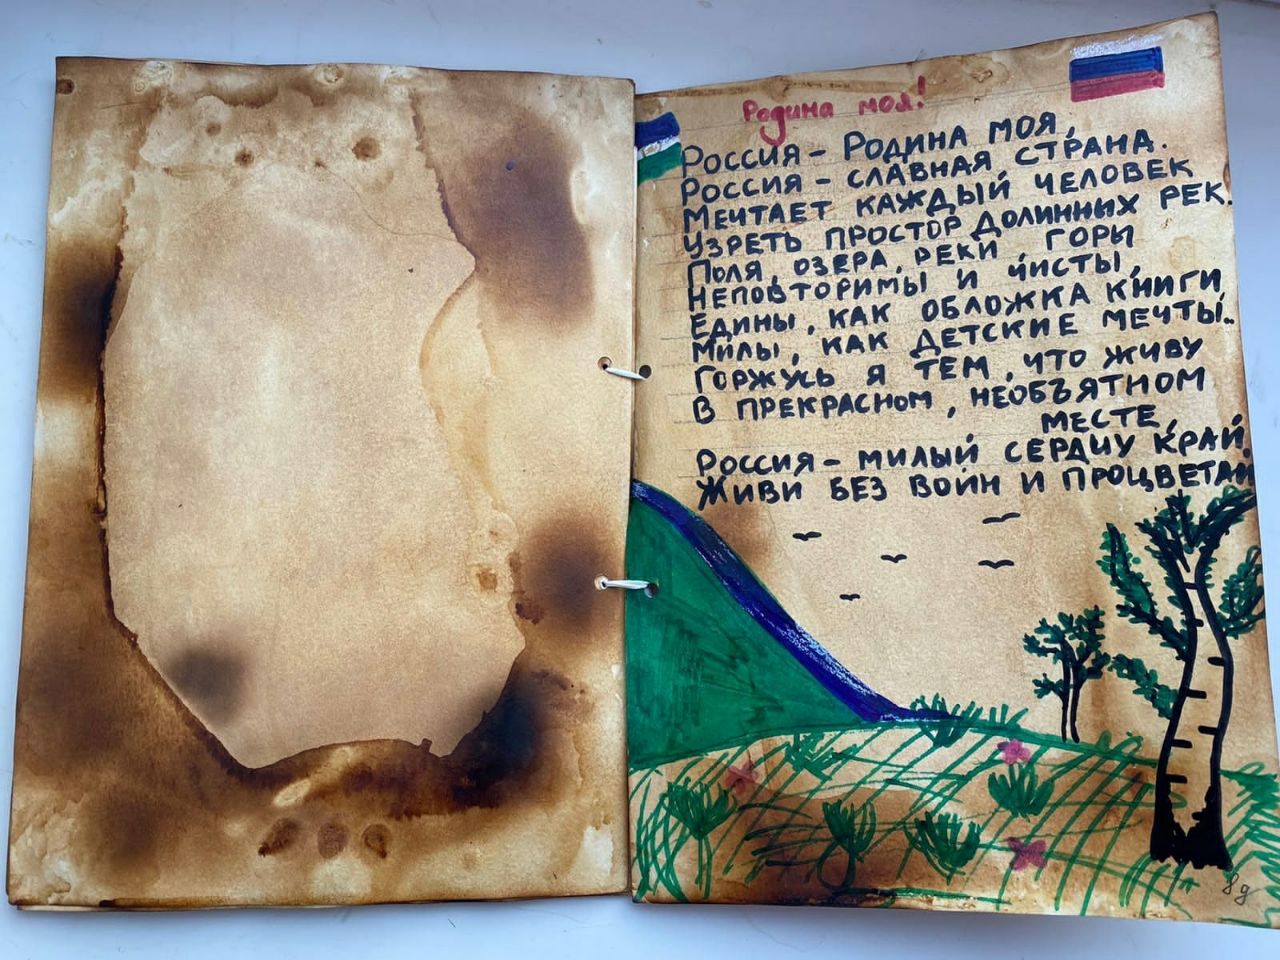 Родина моя!
Россия – Родина моя,
Россия – славная страна.
Мечтает каждый человек
Узреть простор долинных рек.
Поля, озера, реки горы
Неповторимы и чисты,
Едины, как обложка книги
Милы, как детские мечты..
Горжусь я тем, что живу
В прекрасном, необъятном
месте,
Россия – милый сердцу край.
Живи без войн и процветай
8д